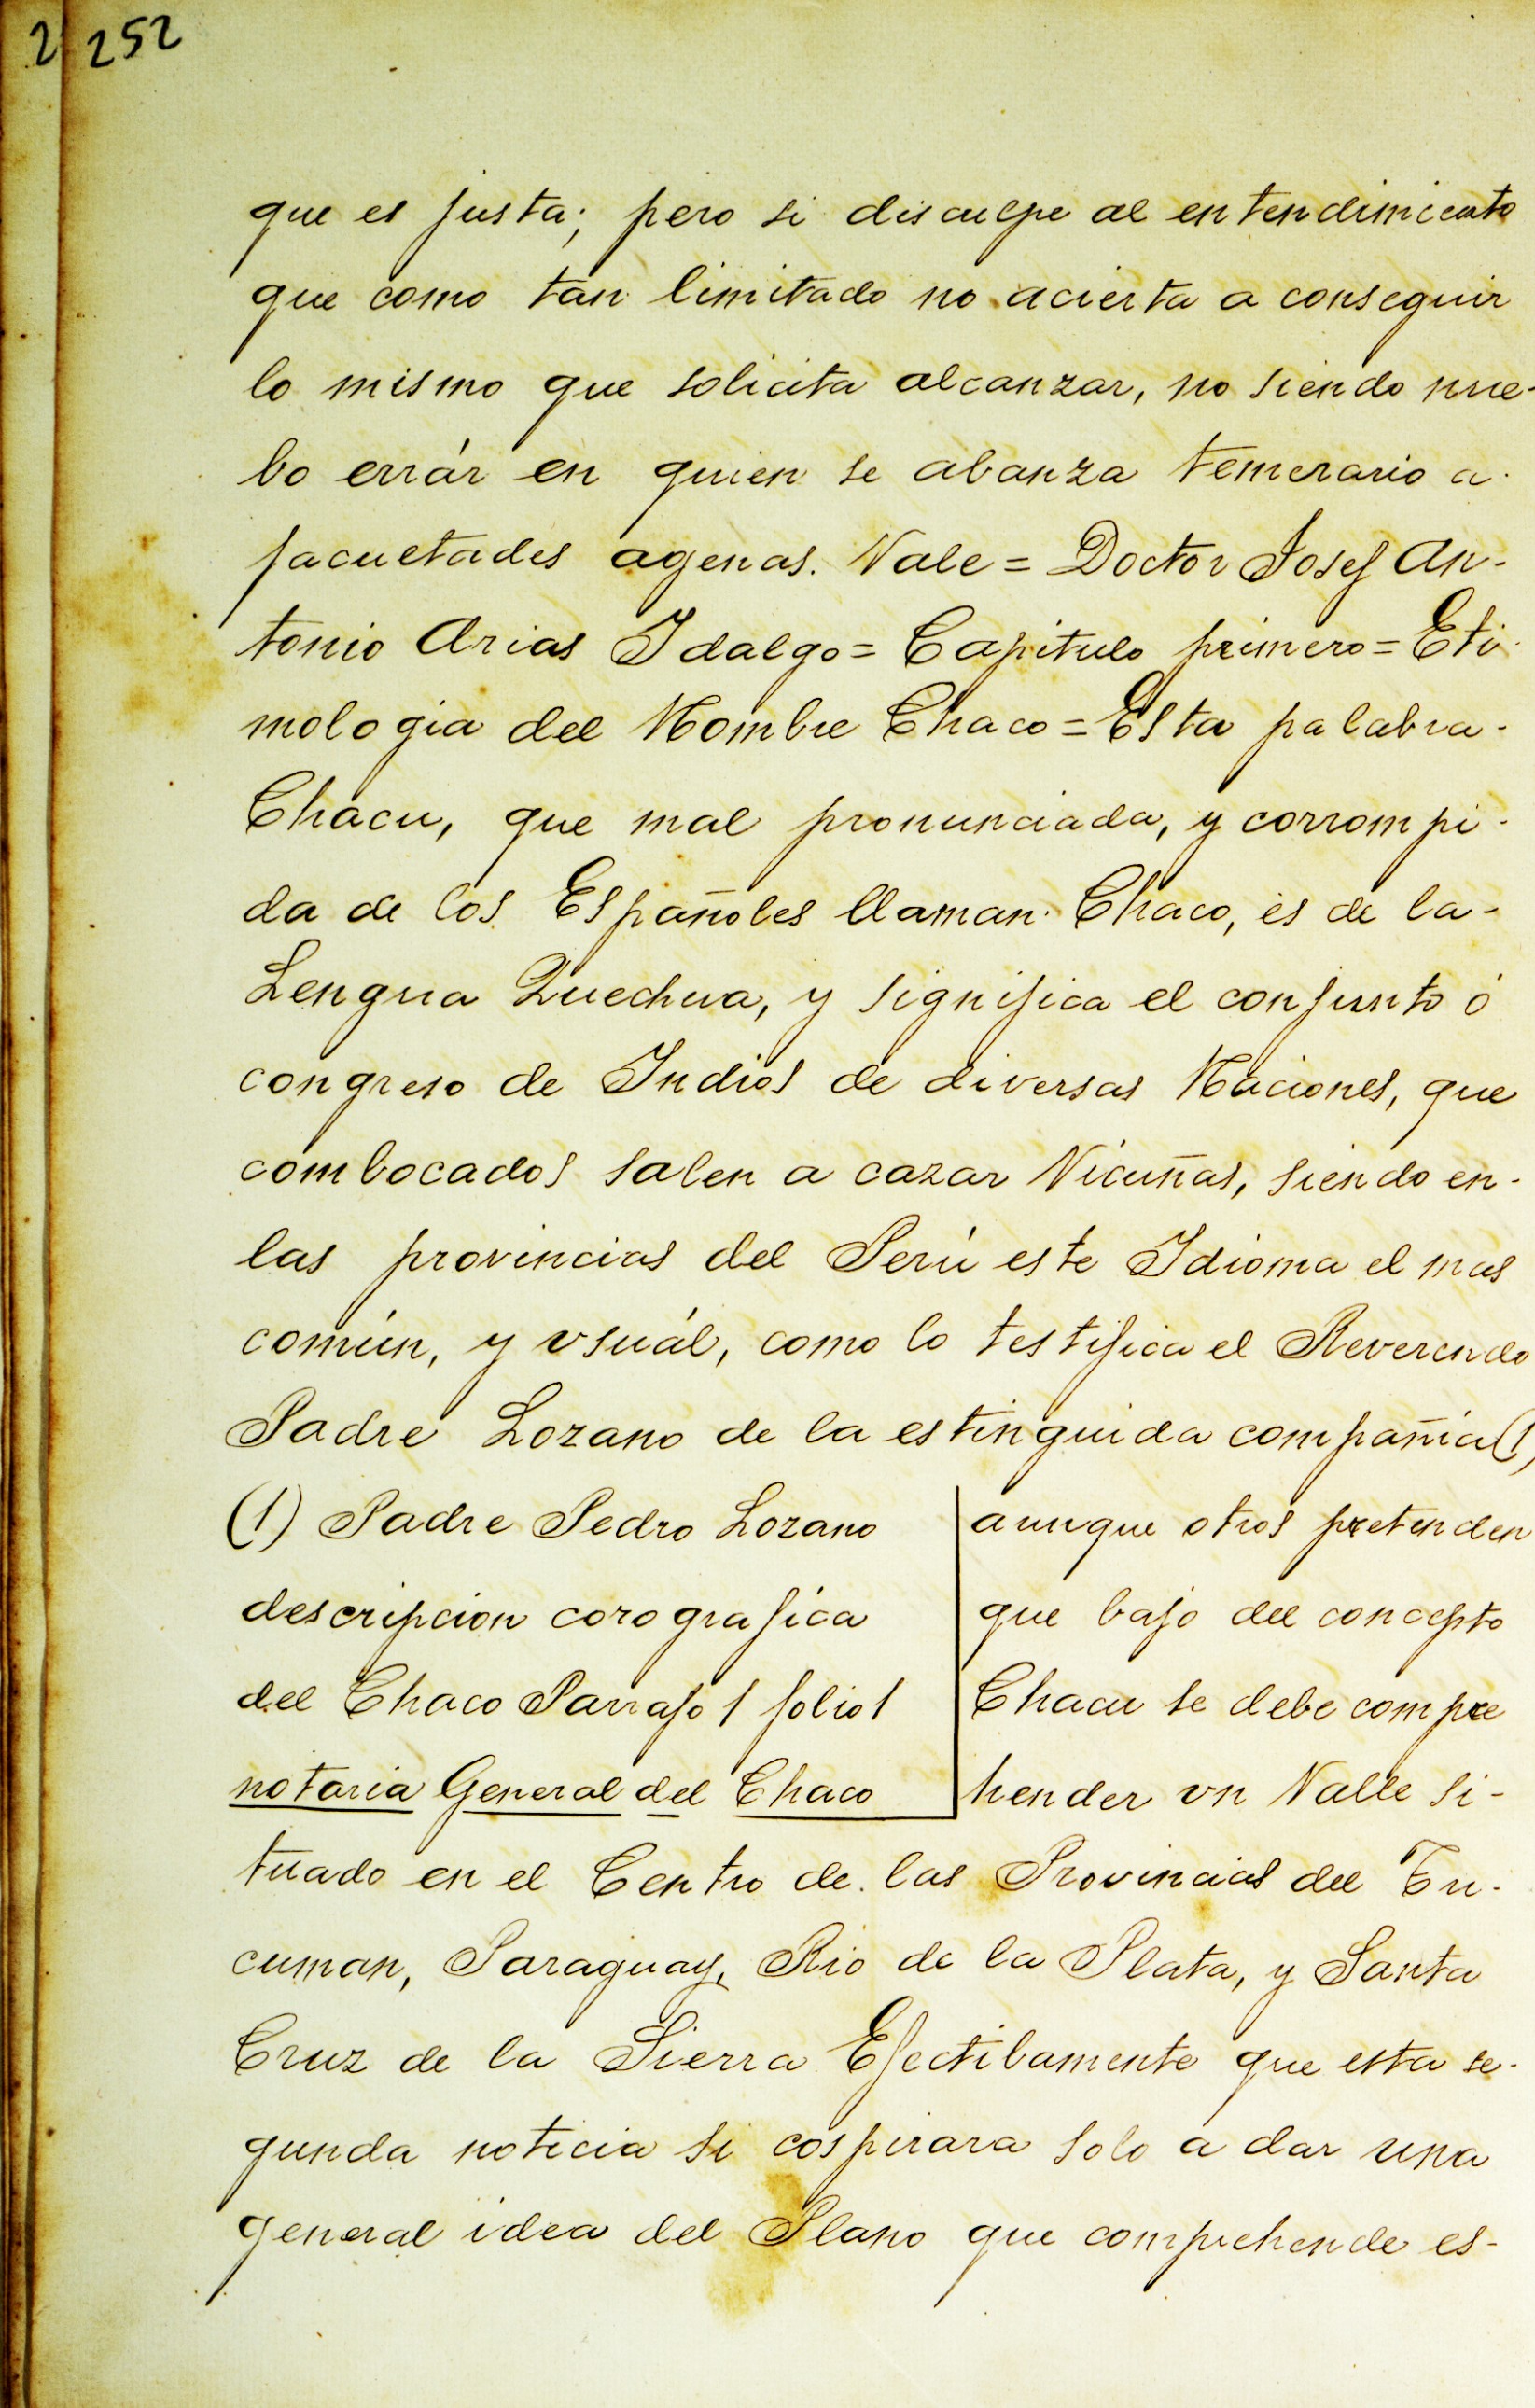 2 252
que es justa; pero si disculpe al entendimiento
que como tan limitado no acierta a conseguir
lo mismo que solicita alcanzar, no siendo nue-
bo errár en quien se abanza temerario a
facultades agenas. Vale = Doctor Josef An-
tonio Arias Idalgo = Capitulo primero = Eti-
mologia del Nombre Chaco = Esta palabra-
Chacu, que mal pronunciada, y corrompi-
da de los Españoles llaman Chaco, es de la-
Lengua Quechua, y significa el conjunto ó
congreso de Indios de diversas Naciones, que
combocados salen a cazar Vicuñas, siendo en-
las provincias del Perú este Idioma el mas
común, y vsuál, como lo testifica el Reverendo
Padre Lozano de la estinguida compañia (1)
(1) Padre Pedro Lozano
descripcion corografica
del Chaco Parrafo 1 folio 1
notaria General del Chaco
aunque otros pretenden
que bajo del concepto
Chacu se debe compre
hender vn Valle si-
tuado en el Centro de las Provincias del Tu-
cuman, Paraguay, Rio de la Plata, y Santa
Cruz de la Sierra Efectibamente que esta se-
gunda noticia si cospirara solo a dar una
general idea del Plano que comprehende es-